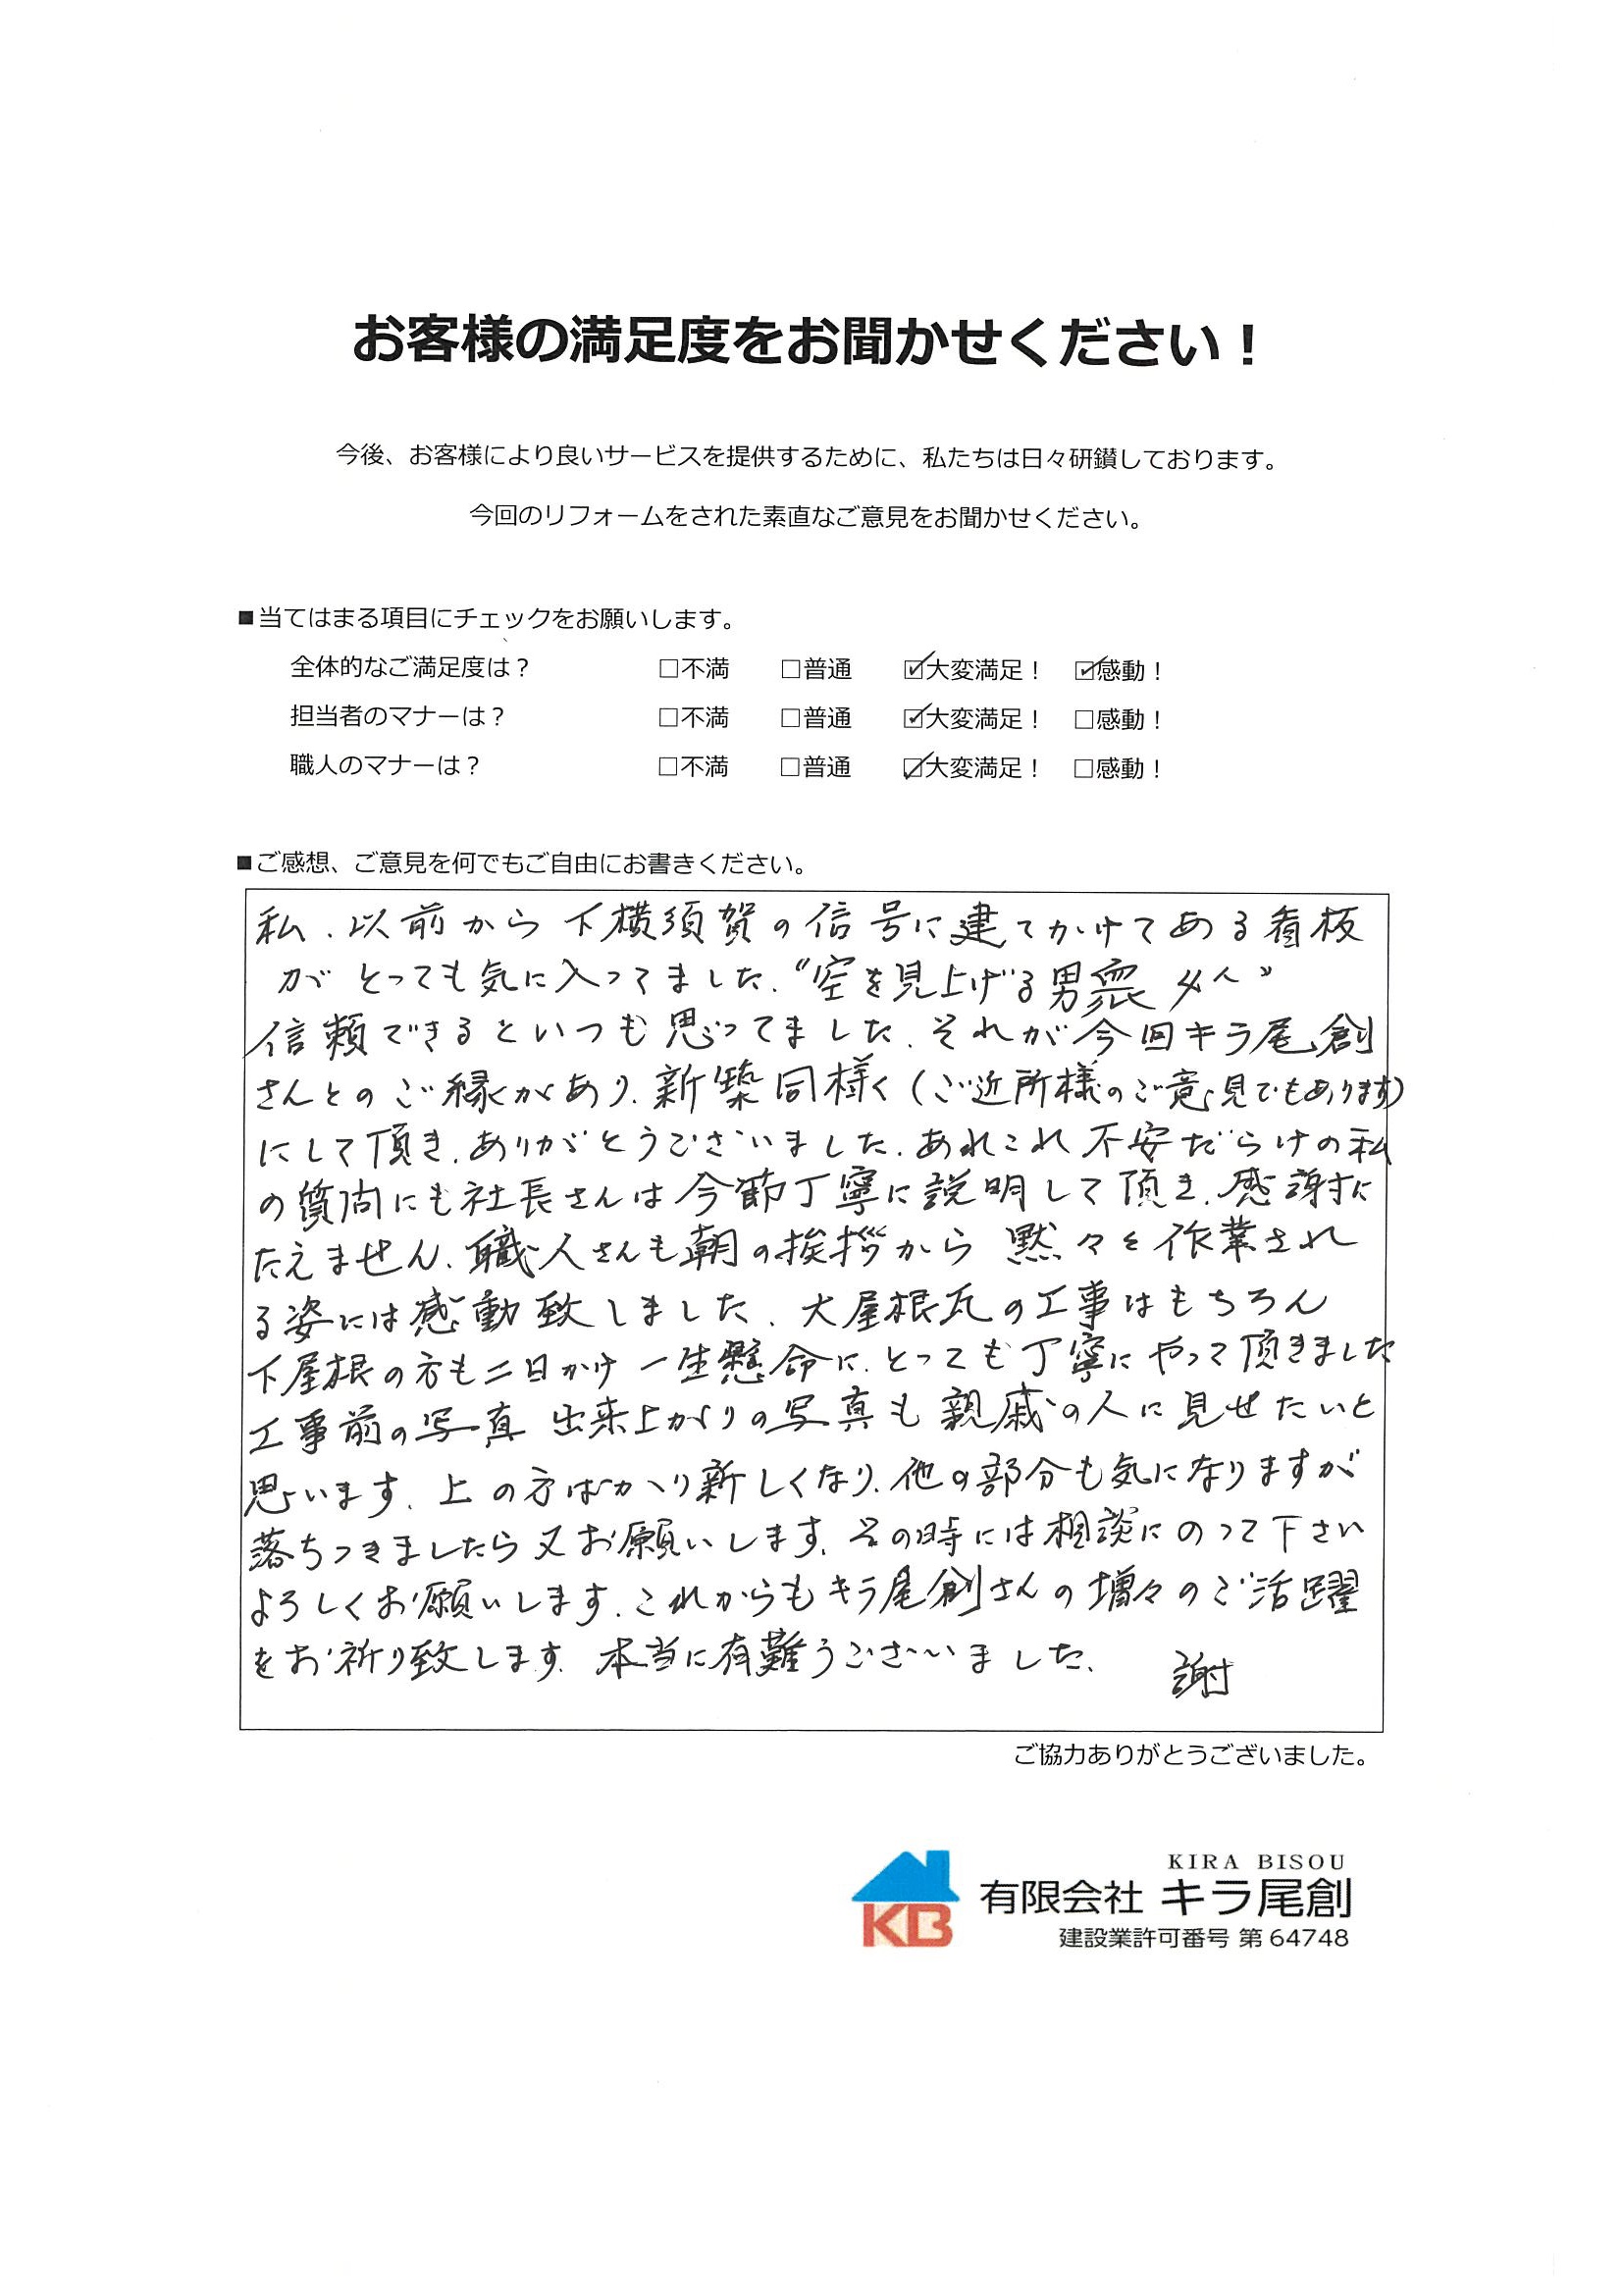 お客様の満足度をお聞かせください！
今後、お客様により良いサービスを提供するために、私たちは日々研鑚しております。
今回のリフォームをされた素直なご意見をお聞かせください。
■当てはまる項目にチェックをお願いします。
全体的なご満足度は？ □不満 □普通 ☑大変満足！ ☑感動！
担当者のマナーは？ □不満 □普通 ☑大変満足！ □感動！
職人のマナーは？ □不満 □普通 ☑大変満足！ □感動！
■ご感想、ご意見を何でもご自由にお書きください。
私、以前から下横須賀の信号に建てかけてある看板
がとっても気に入ってました、“空を見上げる男衆 4人”
信頼できるといつも思ってました、それが今回キラ尾創
さんとのご縁があり、新築同様く(ご近所様のご意見でもあります)
にして頂き、ありがとうございました、あれこれ不安だらけの私
の質問にも社長さんは今節丁寧に説明して頂き、感謝に
たえません、職人さんも朝の挨拶から黙々と作業され
る姿には感動致しました、大屋根瓦の工事はもちろん
下屋根の方も二日かけ一生懸命に、とっても丁寧にやって頂きました
工事前の写真 出来上がりの写真も親戚の人に見せたいと
思います、上の方ばかり新しくなり、他の部分も気になりますが
落ちつきましたら又お願いします、その時には相談にのって下さい
よろしくお願いします、これからもキラ尾創さんの増々のご活躍
をお祈り致します、本当に有難うございました、 謝
ご協力ありがとうございました。
KIRA BISOU
KB 有限会社 キラ尾創
建設業許可番号 第64748